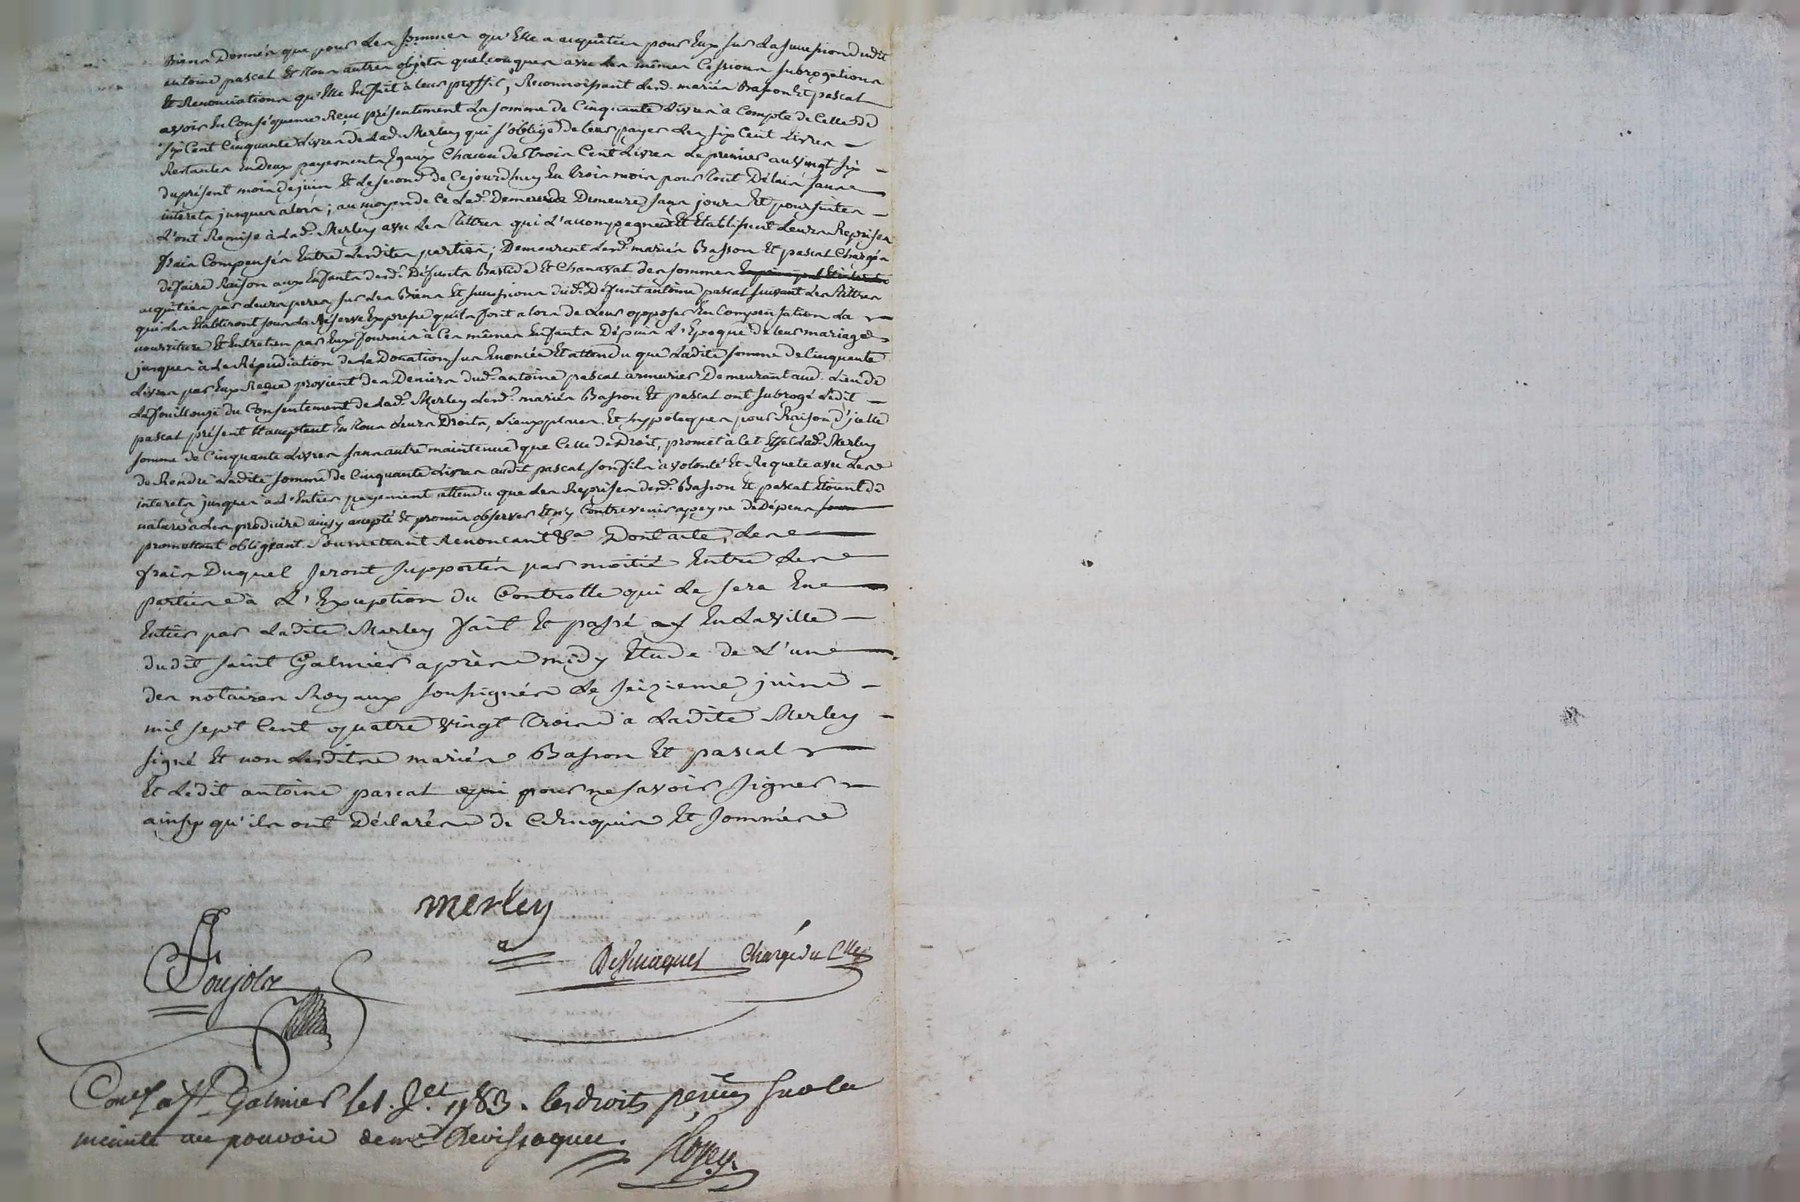 Biens Donnés que pour les sommes qu'Elle a acquittées pour Eux sur la succession dudit
antoine pascal Et tous autres objets quelconques avec les mêmes Cessions subrogations
Et Renonciations qu'Elle En fait à leur proffit, Reconnoissant lesd. mariés Basson Et pascal
avoir En Conséquence Reçu présentement la somme de Cinquante Livres à Compte de Celle de
six Cent Cinquante Livres de lad. Merley qui s'oblige de leur payer les six Cent Livres
Restantes En deux payements Egaux Chacun de trois Cent Livres le premier au vingt six
du présent mois de juin Et le second de Cejourd'huy En trois mois pour tout Délais sans
intérêts jusques alors; au moyen de ce lad. Demeure sans jours Et poursuites
L'ont Remise à lad. Merley avec les tittres qui l'accompagnent Et Etablissent leurs Reprises
frais Compensés Entre lesdites parties; Demeurent lesd. mariés Basson Et pascal Chargés
de faire Raison aux Enfants desd. Défunts Bastide Et Chanavat des sommes
acquittées par leurs peres sur les Biens Et successions dud. Défunt antoine pascal suivant les tittres
qui les Etabliront sous la Réserve Expresse qu'ils font alors de leur opposer En Compensation la
nourriture Et Entretien par Eux fournis à Ces mêmes Enfants Dépuis L'Epoque de leur mariage
jusques à la Répudiation de la Donation sus Enoncée Et attendu que ladite somme de Cinquante
Livres par Eux Reçue provient des Deniers dud. antoine pascal armurier Demeurant aud. Lieu de
La fouillouse du Consentement de lad. Merley lesd. mariés Basson Et pascal ont subrogé ledit
pascal présent Et acceptant En tous leurs Droits, Lieux places Et hypoteques pour Raison d'jcelle
somme de Cinquante Livres sans autre maintenue que Celle de Droit, promet à Cet Effet lad. Merley
de Rendre ladite somme de Cinquante Livres audit pascal son fils à volonté Et Requete avec les
interets jusques à l'Entier payement attendu que les Reprises desd. Basson Et pascal Etoient de
nature à les produire ainsy accepté Et promis observer Et n'y Contrevenir a peyne de Dépens
promettant obligeant soumettant Renoncant &a Dont acte, les
frais Duquel seront supportés par moitié Entre les
parties à L'Exception du Controlle qui le sera En
Entier par ladite Merley fait Et passé En la ville
dudit saint Galmier après midy Etude de L'un
des notaires Royaux soussignés le seizieme juin
mil sept Cent quatre vingt trois a ladite Merley
signé Et non lesdits mariés Basson Et pascal
Et ledit antoine pascal pour ne savoir signer
ainsy qu'ils ont Déclarés de Enquis Et sommés
merley
Devissaguet Chargé du
Poujola
a St Galmier le 1. Jet. 1783. les droits perçus sur la
minute au pouvoir de me Devissaguet.